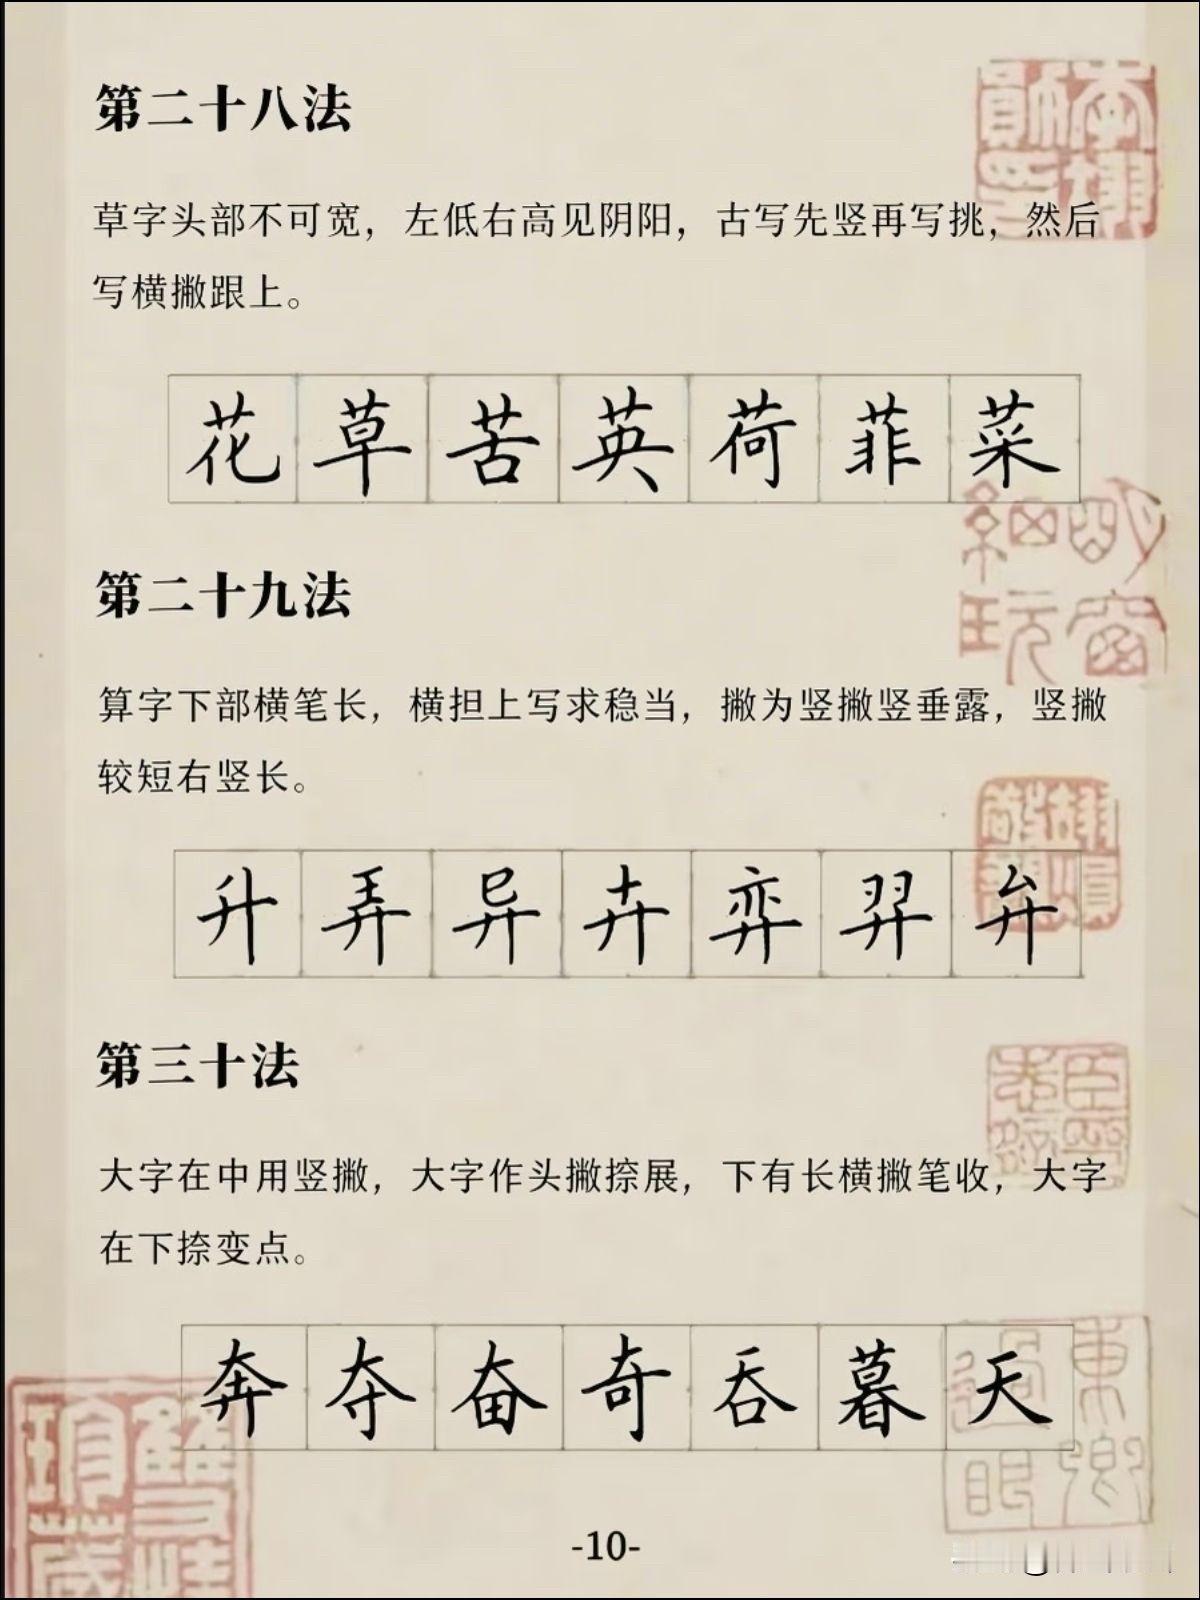 第二十八法
草字头部不可宽，左低右高见阴阳，古写先竖再写挑，然后
写横撇跟上。
花草苦英荷菲菜
第二十九法
算字下部横笔长，横担上写求稳当，撇为竖撇竖垂露，竖撇
较短右竖长。
升弄异卉弈羿弁
第三十法
大字在中用竖撇，大字作头撇捺展，下有长横撇笔收，大字
在下捺变点。
奔夺奋奇吞暮天
明窗
細玩
東卿
過眼
-10-